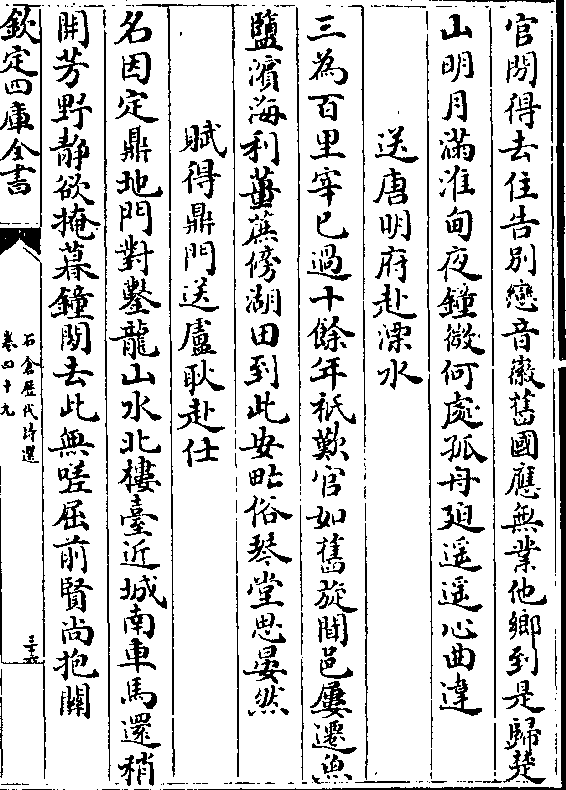 官閒得去住告別戀音徽舊國應無業他鄉到是歸楚
山明月滿淮甸夜鐘微何處孤舟廹遥遥心曲違
送唐明府赴溧水
三為百里宰已過十餘年秪歎官如舊旋聞邑屢遷魚
鹽濱海利薑蔗傍湖田到此安甿俗琴堂思晏然
賦得鼎門送盧耿赴仕
名因定鼎地門對鑿龍山水北樓臺近城南車馬還稍
開芳野静欲掩暮鐘閒去此無嗟屈前賢尚抱關
欽定四庫全書
石倉歷代詩選
卷四十九
三十六